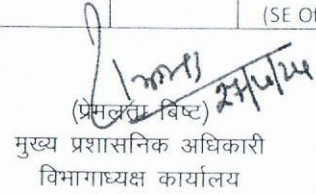 (SE Of
(प्रेमलता बिष्ट)
मुख्य प्रशासनिक अधिकारी
विभागाध्यक्ष कार्यालय